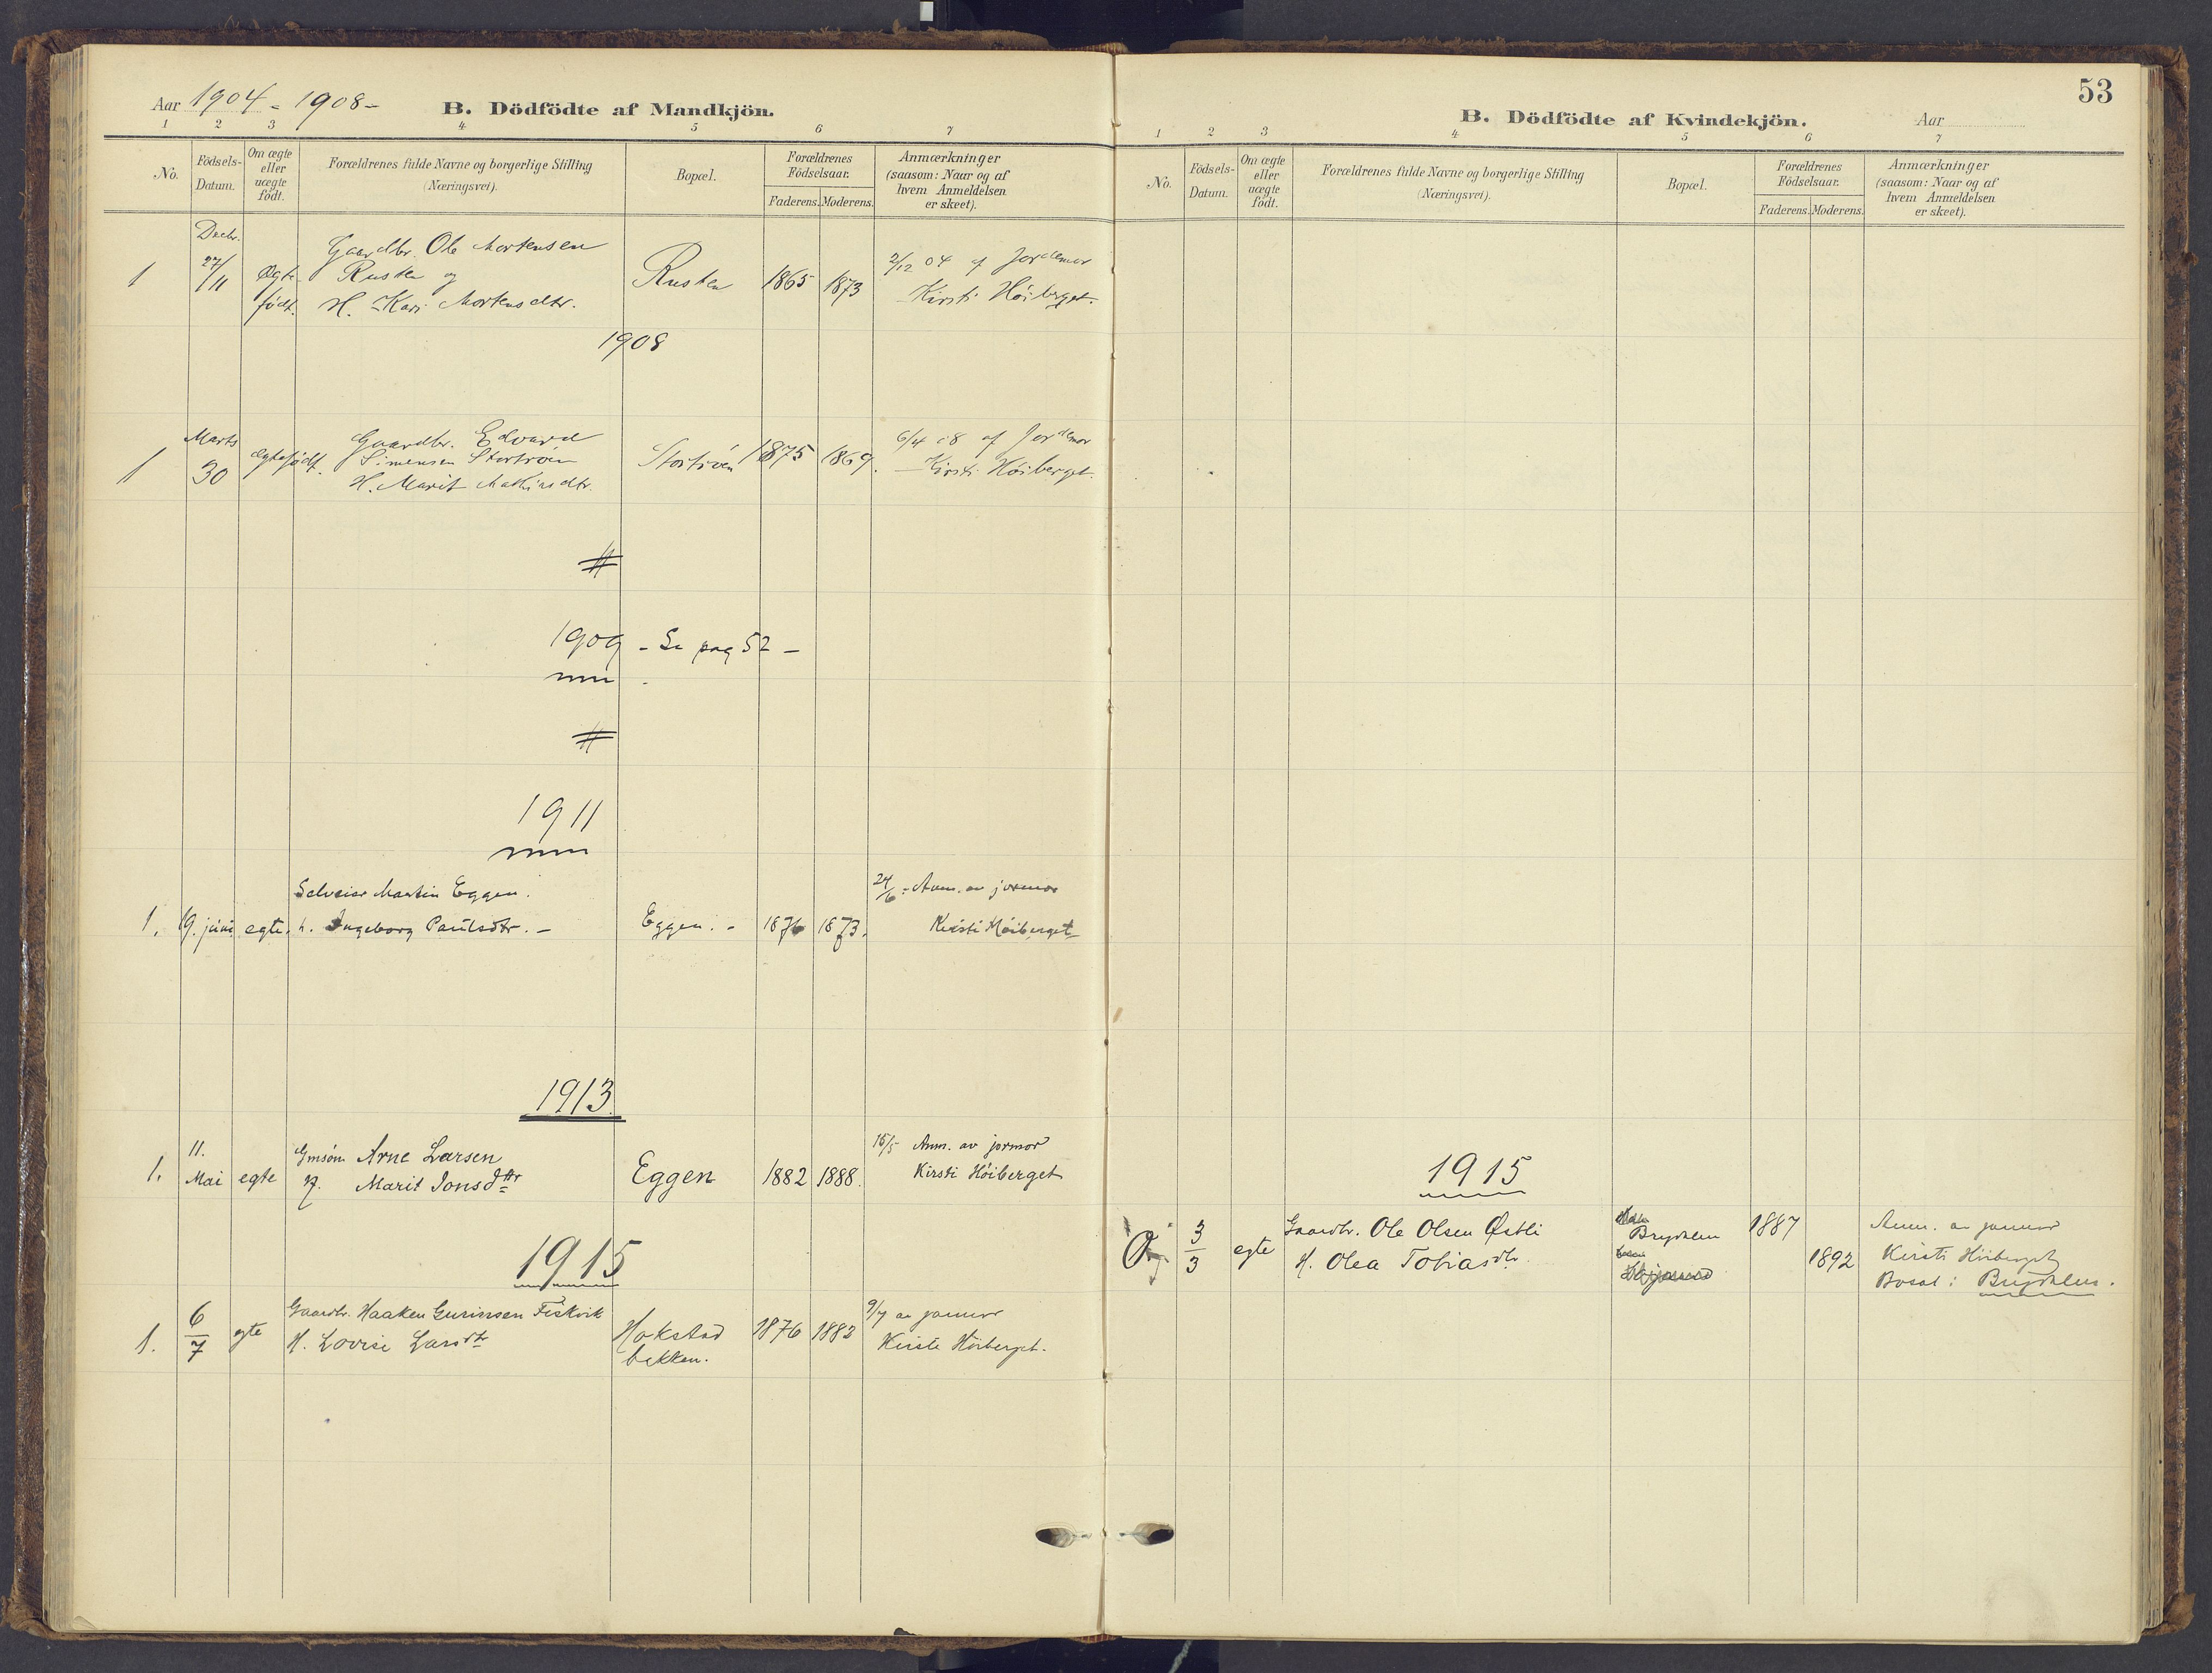 Aar 1904 - 1908 -
B. Dödfödte af Mandkjön.
1 2 3 4 5 6 7
No.
Födsels-
Datum.
Om ægte
eller
uægte
födt.
Forældrenes fulde Navne og borgerlige Stilling
(Næringsvei).
Bopæl.
Forældrenes
Födselsaar.
Faderens. Moderens.
Anmærkninger
(saasom: Naar og af
hvem Anmeldelsen
er skeet).
Decbr.
1 27/11 Ægte Gaardbr. Ole Mortensen
Rusten og Rusten 1865 1873 2/12 04 af Jordemor
födt. H. Kari Mortensdtr. Kirsti Höiberget.
1908
Marts
1 30 ægtefödt. Gaardbr. Edvard
Simensen Störtröen Störtröen 1875 1869. 6/4 08 af Jordemor
H. Marit Mathiasdtr. Kirsti Höiberget.
1909 - Se pag 52 -
1911
Selveier Martin Eggen. 24/6 - Anm. av jormor
1. 19. juni egte. h. Ingeborg Paulsdtr. - Eggen. - 1876 1873. Kirsti Höiberget
1913
1. 11. Mai egte Gmsön Arne Larsen
H. Marit Jonsdtr Eggen 1882 1888. 15/5 Anm. av jormor
Kirsti Höiberget
1915
1. 6/7 egte Gaardbr. Haaken Gurinsen Fiskvik
H. Lovise Larsdtr Hokstad
bekken. 1876 1882 9/7 av jormor
Kirsti Höiberget.
53
B. Dödfödte af Kvindekjön.
Aar
1 2 3 4 5 6 7
No.
Födsels-
Datum.
Om ægte
eller
uægte
födt.
Forældrenes fulde Navne og borgerlige Stilling
(Næringsvei).
Bopæl.
Forældrenes
Födselsaar.
Faderens. Moderens.
Anmærkninger
(saasom: Naar og af
hvem Anmeldelsen
er skeet).
1915
3/3 egte Gaardbr. Ole Olsen Østli
H. Olea Tobiasdtr. Brydalen 1887 1892 Anm. av jormor
Kirsti Höiberget
Bosat: Brydalen.